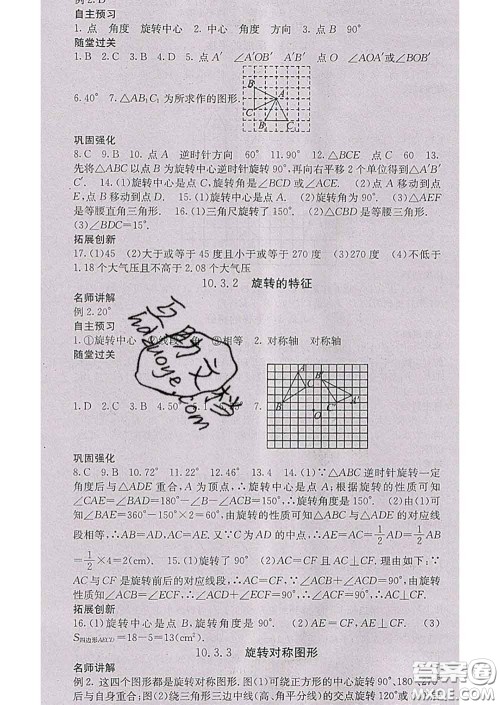 例2.D
自主预习
1. 点 角度 旋转中心 2. 中心 角度 方向 3. 点B 90°
随堂过关
1.B 2.C 3.B 4.D 5. 点A′ ∠A′OB′ A′B′ 点O ∠AOA′或∠BOB′
6.40° 7.△AB₁C₁为所求作的图形.
巩固强化
8.C 9.B 10. 点A 逆时针方向 60° 11.90° 12.△BCE 点C 60 13.
先将△ABC以点B为旋转中心逆时针旋转90°,再向右平移2个单位得到△A′B′
C′. 14.(1)旋转中心是点C,旋转角是∠BCD或∠ACE. (2)点B移动到点D,点
E移动到点D. 15.(1)旋转中心是点A. (2)旋转了90°. (3)△AEF
是等腰直角三角形. 16.(1)三角尺旋转了150°. (2)△CBD是等腰三角形.
(3)∠BDC=15°.
拓展创新
17.(1)45° (2)大于或等于45度且小于或等于270度 (3)270度 (4)不低于
1.18个大气压且不高于2.08个大气压
10.3.2 旋转的特征
名师讲解
例2.20°
自主预习
1.①旋转中心 ②线段 角 ③相等 2. 对称轴 对称轴
随堂过关
1.D 2.C 3.B 4.50° 5. 7.
巩固强化
8.C 9.B 10.72° 11.22° 12.46° 13.4 14.(1)∵△ABC逆时针旋转一定
角度后与△ADE重合,A为顶点,∴旋转中心是点A;根据旋转的性质可知
∠CAE=∠BAD=180°-∠B-∠ACB=150°,∴旋转角度是150°. (2)由(1)可知
∠BAE=360°-150°×2=60°,由旋转的性质可知△ABC与△ADE的对应线
段相等,∴AC=AE,AB=AD. 又∵C为AD的中点,∴AE=AC=1/2AD=1/2AB
=1/2×4=2(cm). 15.(1)旋转了90°. (2)AC=CF且AC⊥CF. 理由如下:∵
AC与CF是旋转前后的对应线段,∴AC=CF,∠ACD=∠ECF,∴由旋转
性质知∠ECF=∠ACD,∴∠ACD+∠ECF=90°,∴AC⊥CF.
拓展创新
16.(1)旋转中心是点A,旋转角度是90°. (2)AE=CF,AE⊥CF. (3)
S四边形AECD=18-5=13(cm²).
10.3.3 旋转对称图形
名师讲解
例2. 这四个图形都是旋转对称图形. 图(1)可绕正方形的中心旋转90°、180°、270°
后与自身重合;图(2)绕三角形三边中线(高、角平分线)的交点旋转120°或